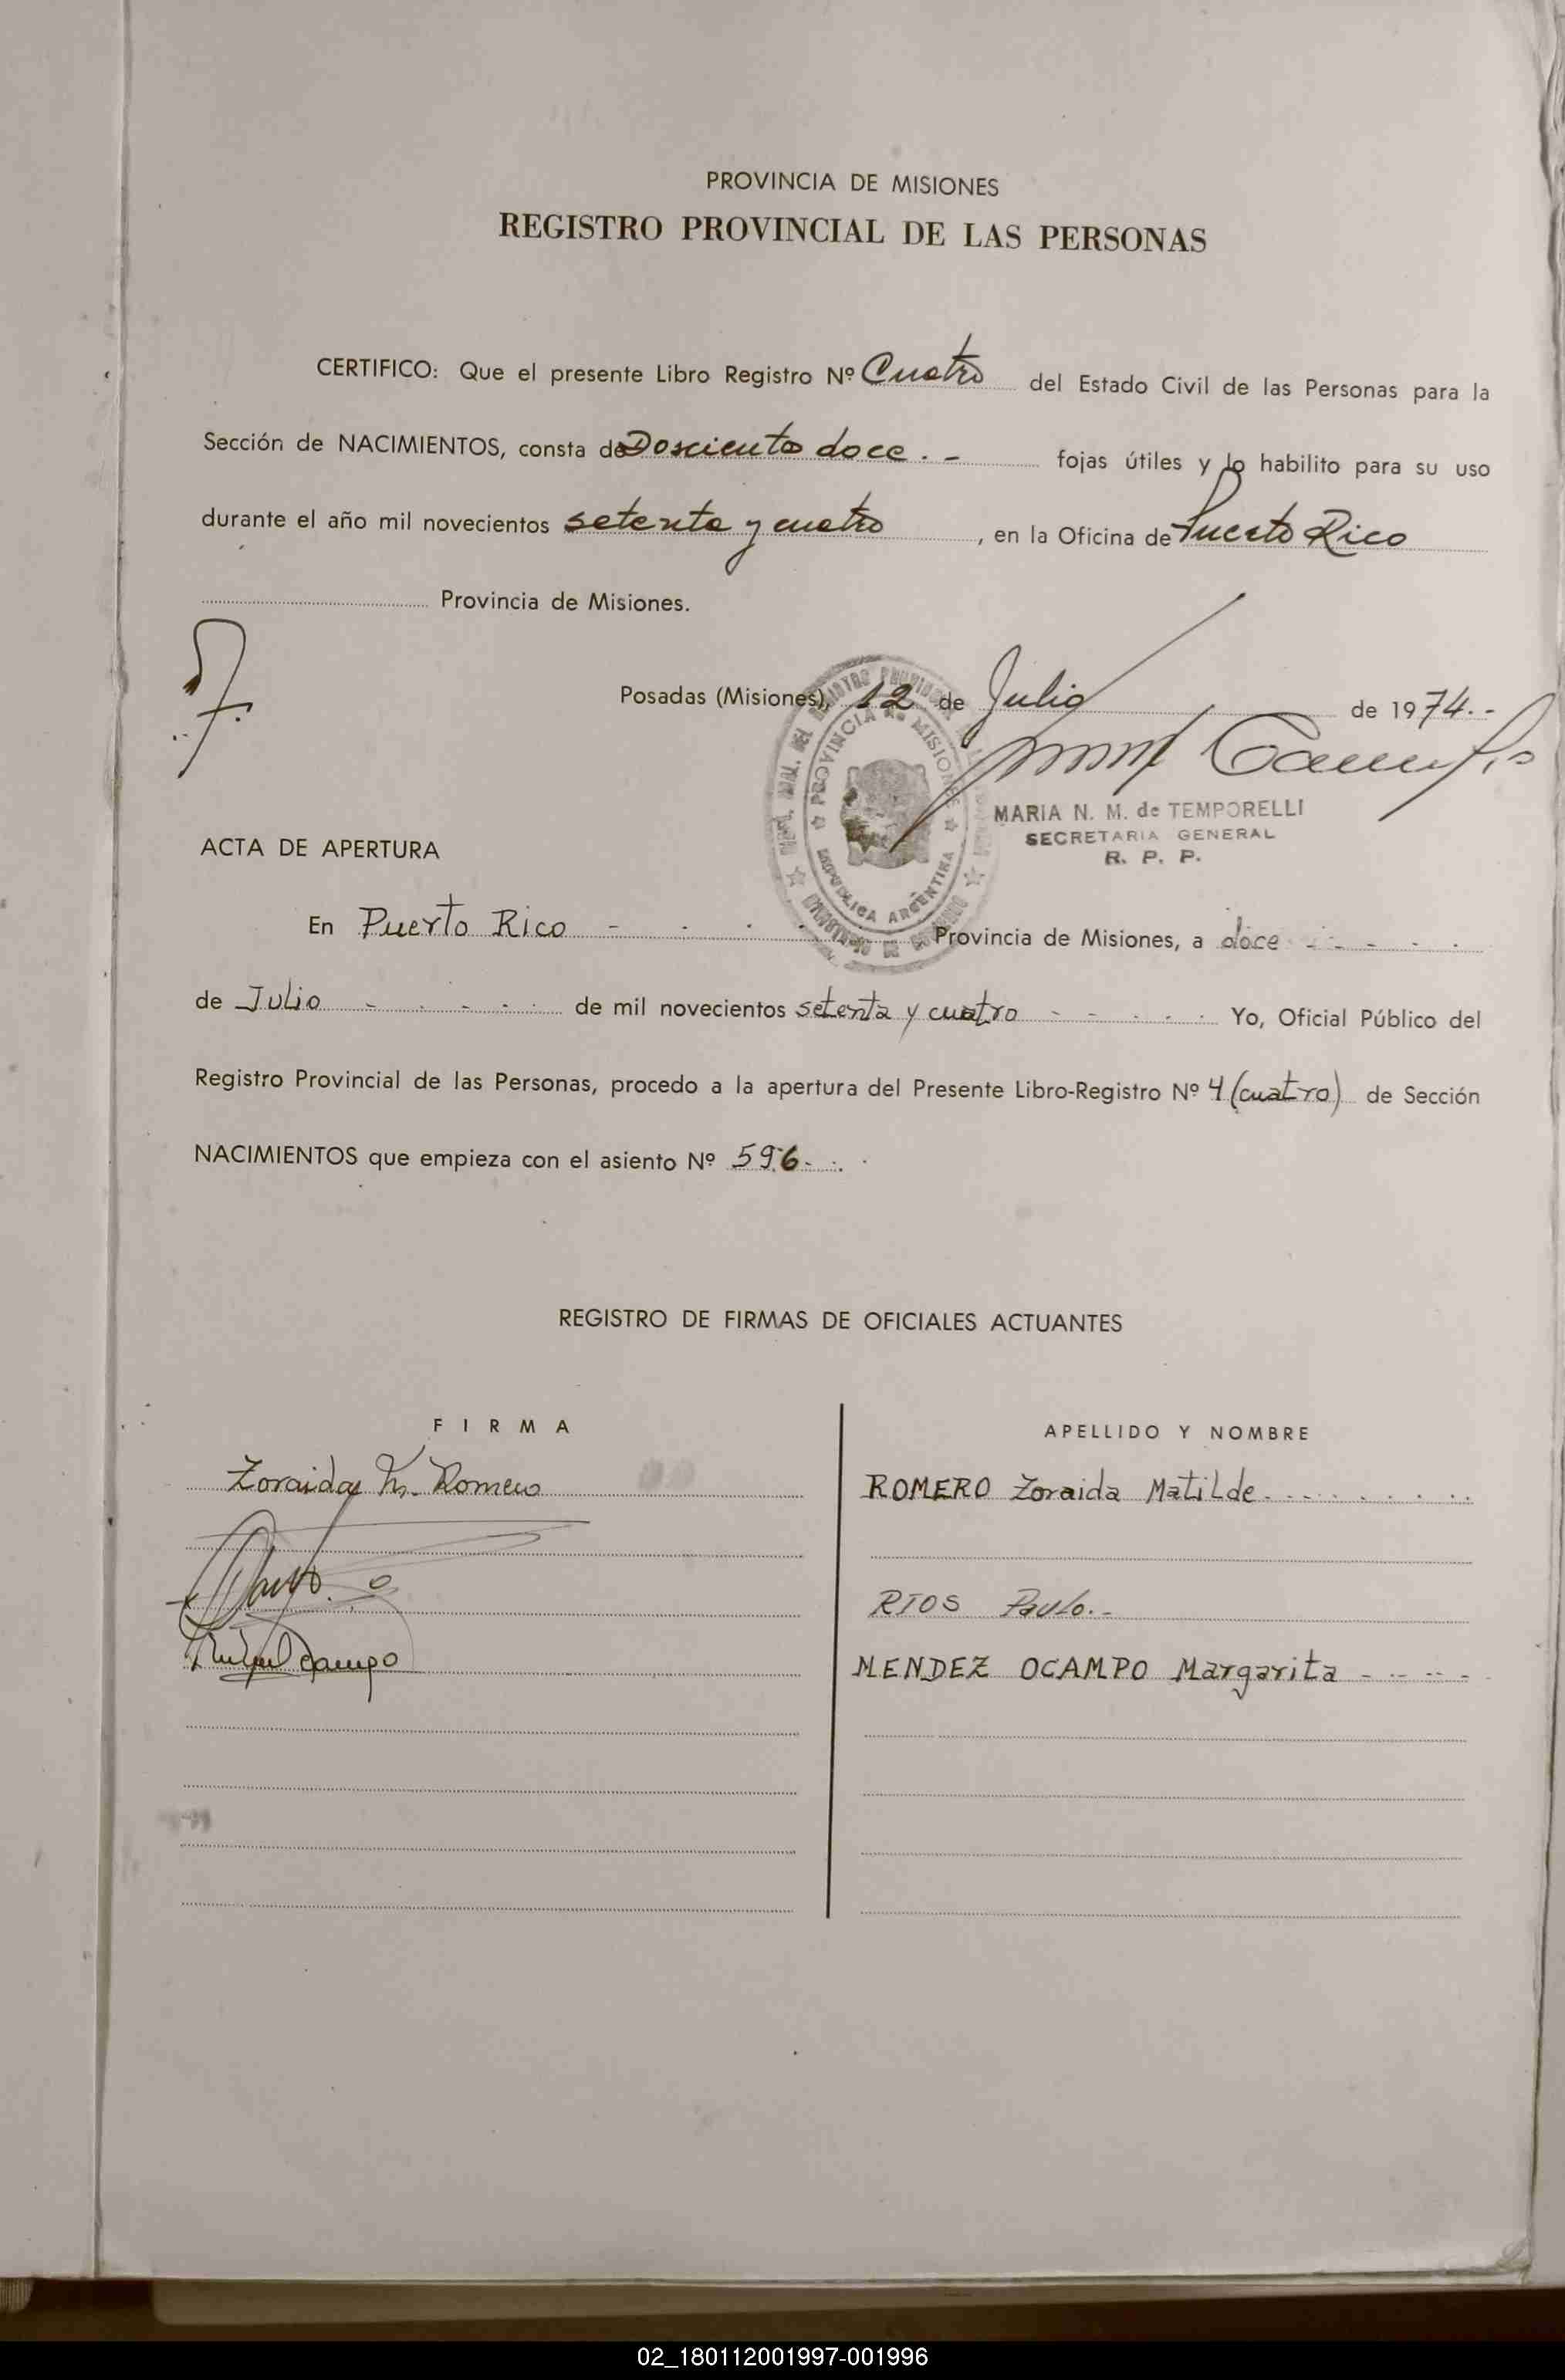 PROVINCIA DE MISIONES
REGISTRO PROVINCIAL DE LAS PERSONAS
CERTIFICO: Que el presente Libro Registro Nº Cuatro del Estado Civil de las Personas para la
Sección de NACIMIENTOS, consta de Doscientos doce . - fojas útiles y lo habilito para su uso
durante el año mil novecientos setenta y cuatro , en la Oficina de Puerto Rico
Provincia de Misiones.
Posadas (Misiones), 12 de Julio de 1974.-
PROVINCIA DE MISIONES
REPUBLICA ARGENTINA
MARIA N. M. de TEMPORELLI
SECRETARIA GENERAL
R. P. P.
ACTA DE APERTURA
En Puerto Rico - Provincia de Misiones, a doce
de Julio de mil novecientos setenta y cuatro Yo, Oficial Público del
Registro Provincial de las Personas, procedo a la apertura del Presente Libro-Registro Nº 4 (cuatro) de Sección
NACIMIENTOS que empieza con el asiento Nº 596.
REGISTRO DE FIRMAS DE OFICIALES ACTUANTES
FIRMA APELLIDO Y NOMBRE
Zoraida M. Romero ROMERO Zoraida Matilde
RIOS Paulo.-
Ocampo MENDEZ OCAMPO Margarita
02_180112001997-001996